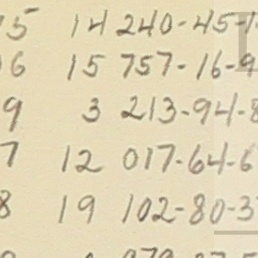 75 14 240-45-1
6 15 757-16-9
9 3 213-94-8
7 12 017-64-6
8 19 102-80-3